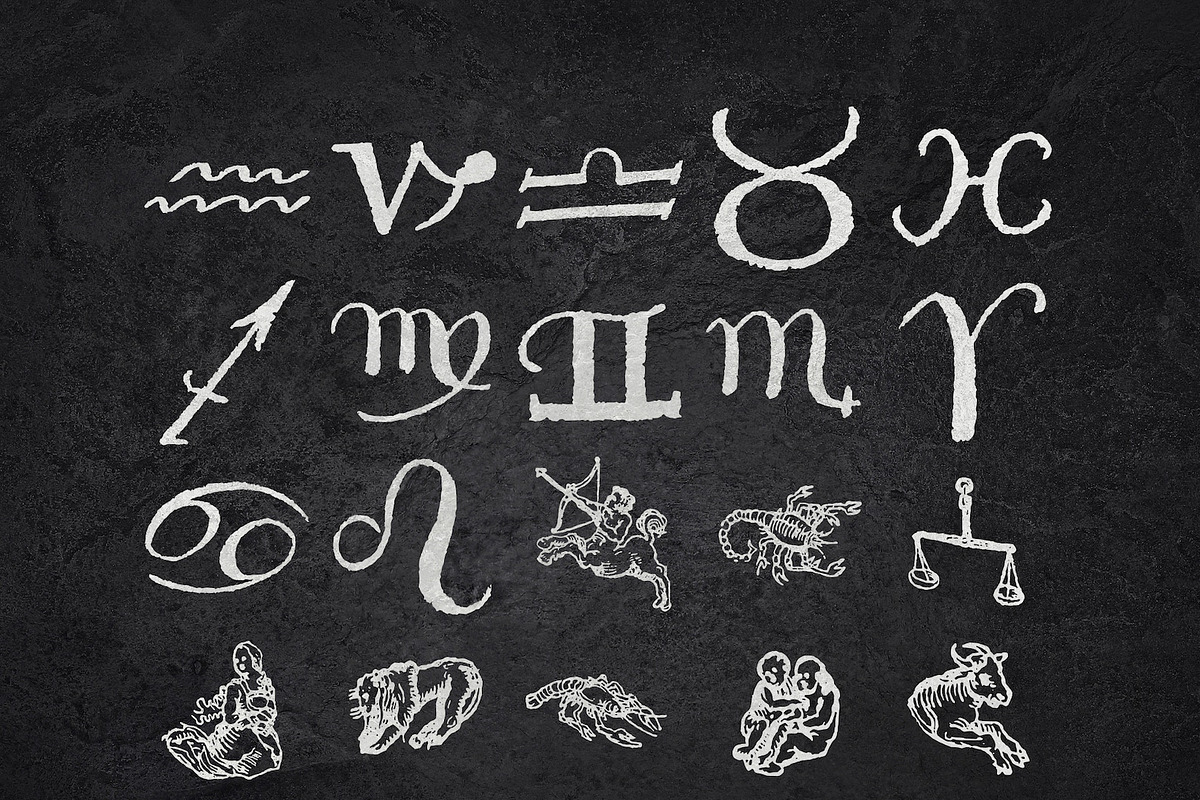 ♒ ♑ ♎ ♉ ♓
♐ ♍ ♊ ♏ ♈
♋ ♌